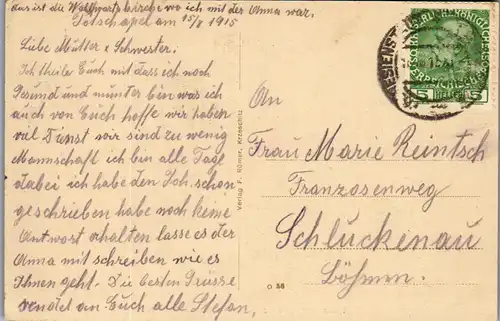 das ist die Wallfartskirche wo ich mit der Anna war.
Potschapel am 15/8 1915
Liebe Mutter u Schwester.
Ich theile Euch mit dass ich noch
Gesund und munter bin was ich
auch von Euch hoffe wir haben
viel Dinst wir sind zu wenig
Mannschaft ich bin alle Tage
dabei ich habe den Joh. schon
geschrieben habe noch keine
Antwort erhalten lasse es der
Anna mit schreiben wie es
Ihnen geht. Die besten Grüsse
sendet an Euch alle Stefan,
Verlag F. Römer,
5 HELLER 5
An
Frau Marie Reintsch
Franzosenweg
Schluckenau
Böhmen.